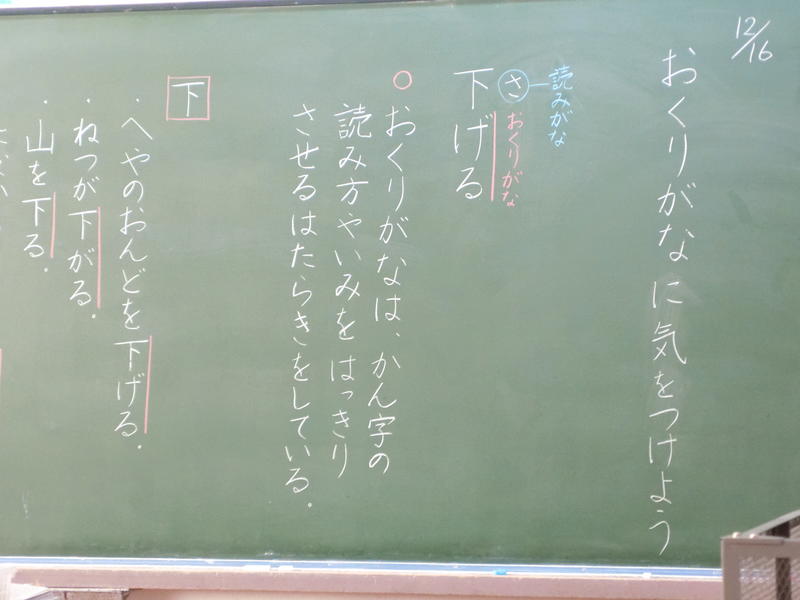 12/16
おくりがなに気をつけよう
読みがな
さ
おくりがな
下げる
○おくりがなは、かん字の
読み方やいみをはっきり
させるはたらきをしている。
下
・へやのおんどを下げる。
・ねつが下がる。
・山を下る。